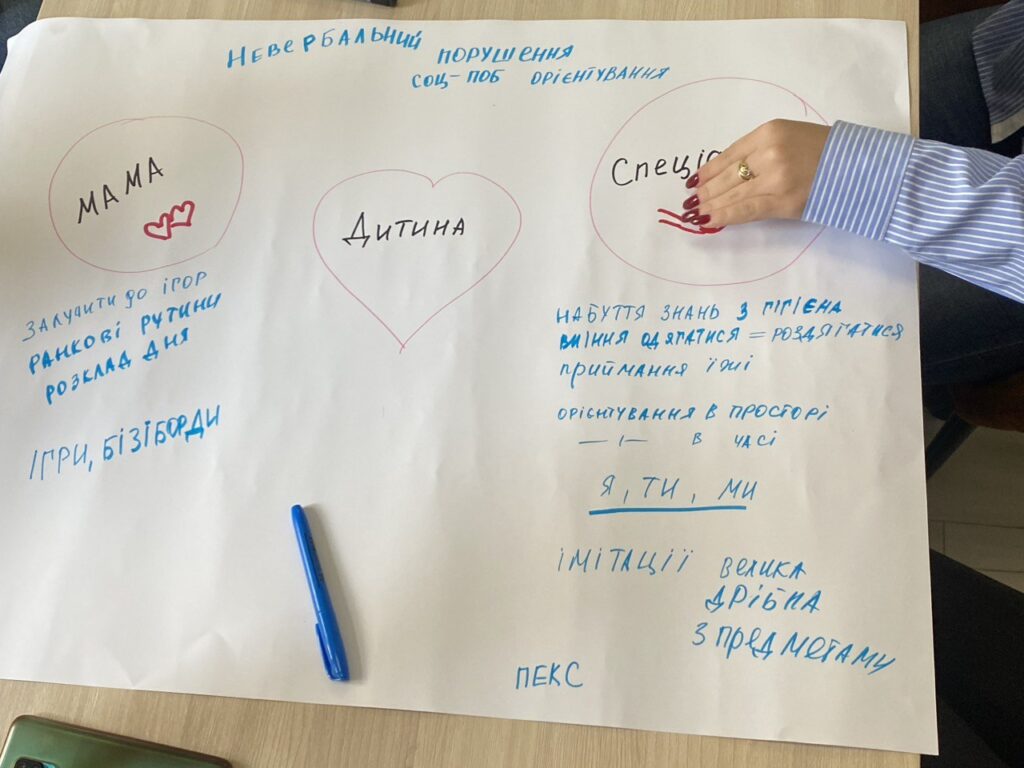 НЕВЕРБАЛЬНИЙ ПОРУШЕННЯ
СОЦ-ПОБ ОРІЄНТУВАННЯ
МАМА
ЗАЛУЧИТИ ДО ІГОР
РАНКОВІ РУТИНИ
РОЗКЛАД ДНЯ
ІГРИ, БІЗІБОРДИ
ДИТИНА
НАБУТТЯ ЗНАНЬ З ГІГІЄНА
ВМІННЯ ОДЯГАТИСЯ = РОЗДЯГАТИСЯ
ПРИЙМАННЯ ЇЖІ
ОРІЄНТУВАННЯ В ПРОСТОРІ
— І — В ЧАСІ
Я, ТИ, МИ
ІМІТАЦІЇ ВЕЛИКА
ДРІБНА
З ПРЕДМЕТАМИ
ПЕКС